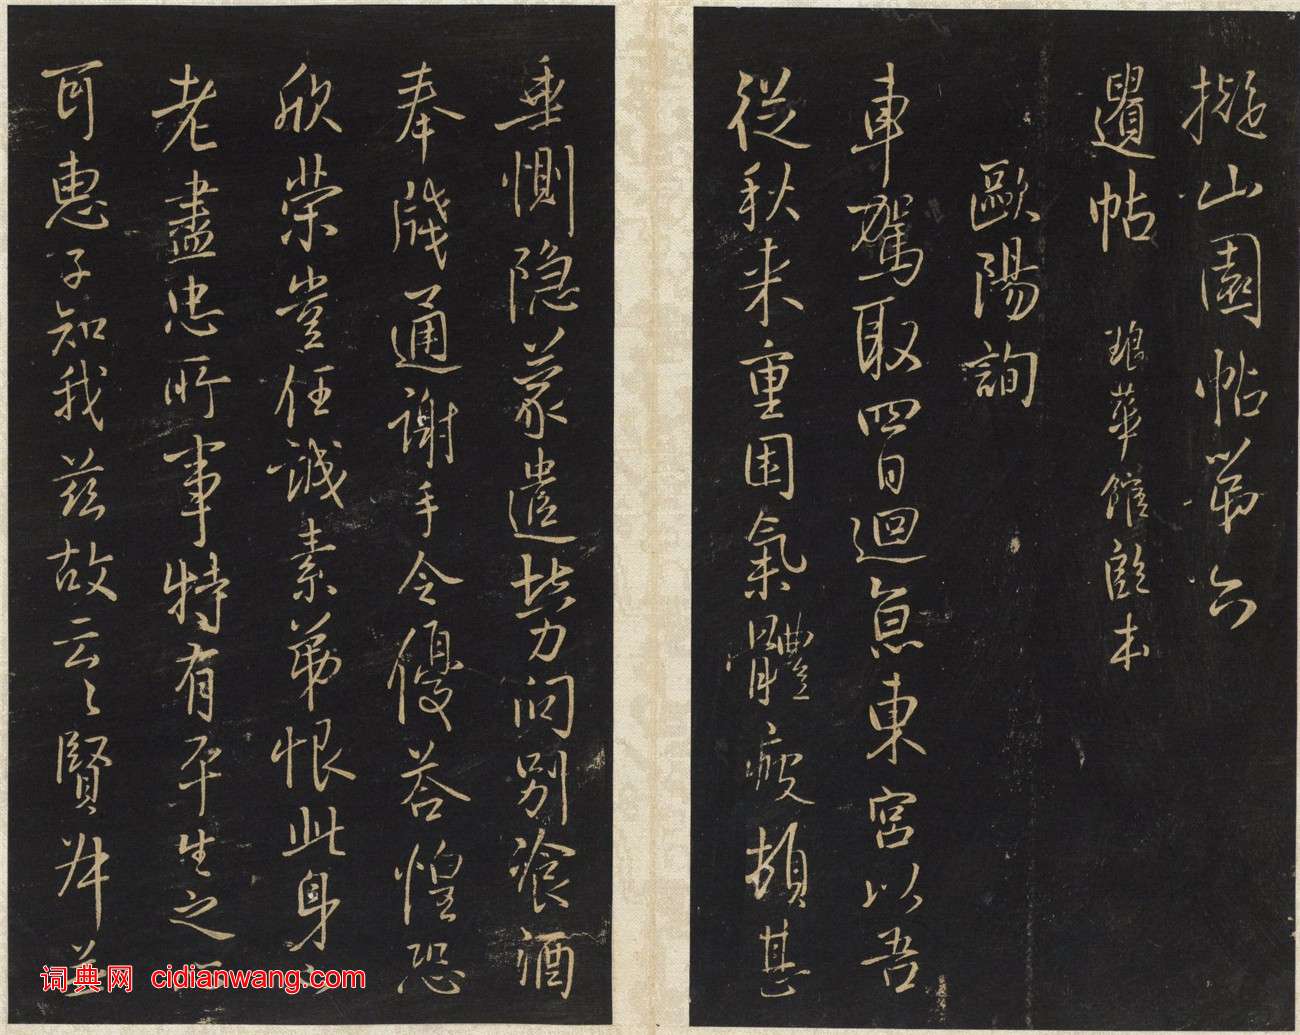 擬山園帖第六
遺帖 琅華館本
歐陽詢
車駕取四日迴息東宮以吾
從秋来重困氣體疲頓甚
垂惻隐蒙遣問別飡酒
奉牋通謝手令優荅惶恐
欣榮豈任誠素第恨此身
老盡忠所事特有平生之
耳惠子知我兹故云々賢
词典网 cidianwang.com